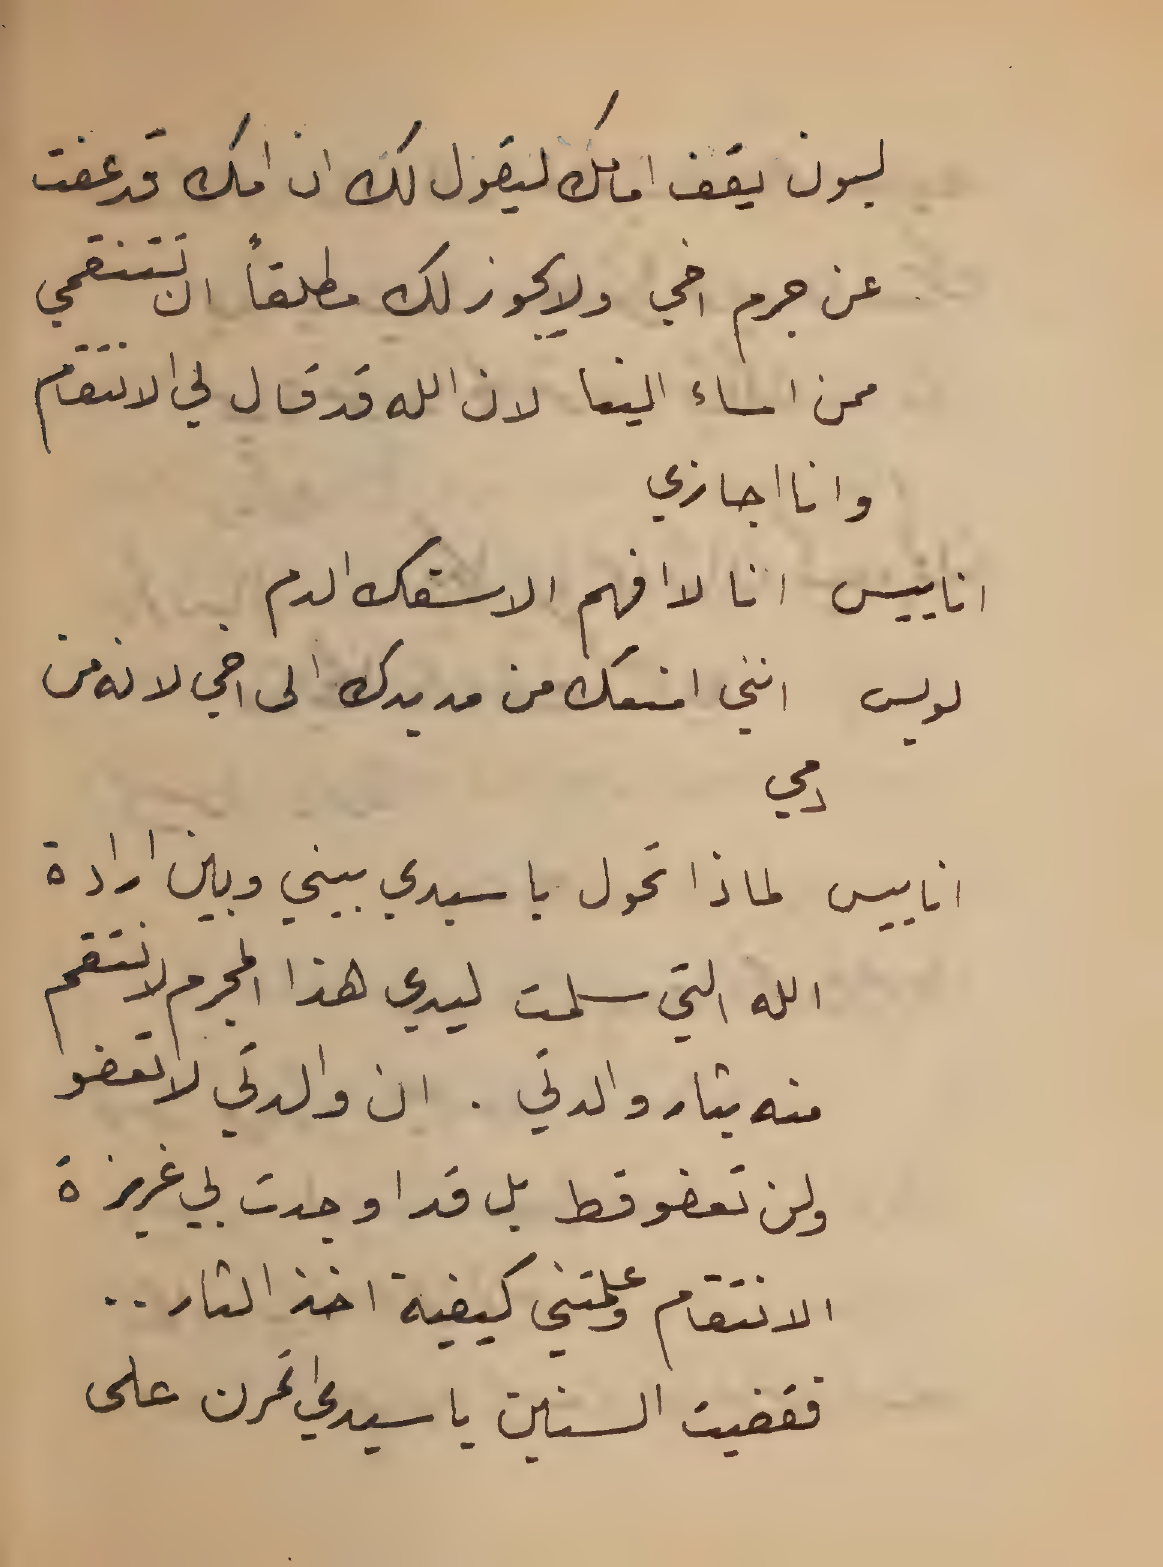 ليون يقف امامك ليقول لك ان امك قد عفت
عن جرم اخي ولا يجوز لك مطلقاً ان تنتقمي
ممن اساء الينا لان الله قد قال لي الانتقام
وانا اجازي
اناييس انا لا افهم الا سفك الدم
لويس انني امنعك من مد يدك الى اخي لانه من
دمي
اناييس لماذا تحول يا سيدي بيني وبين ارادة
الله التي سلمت ليدي هذا المجرم لانتقم
منه بثار والدتي . ان والدتي لا تعفو
ولن تعفو قط بل قد اوجدت بي غريزة
الانتقام وعلمتني كيفية اخذ الثار ..
فقضيت السنين يا سيدي اتمرن على